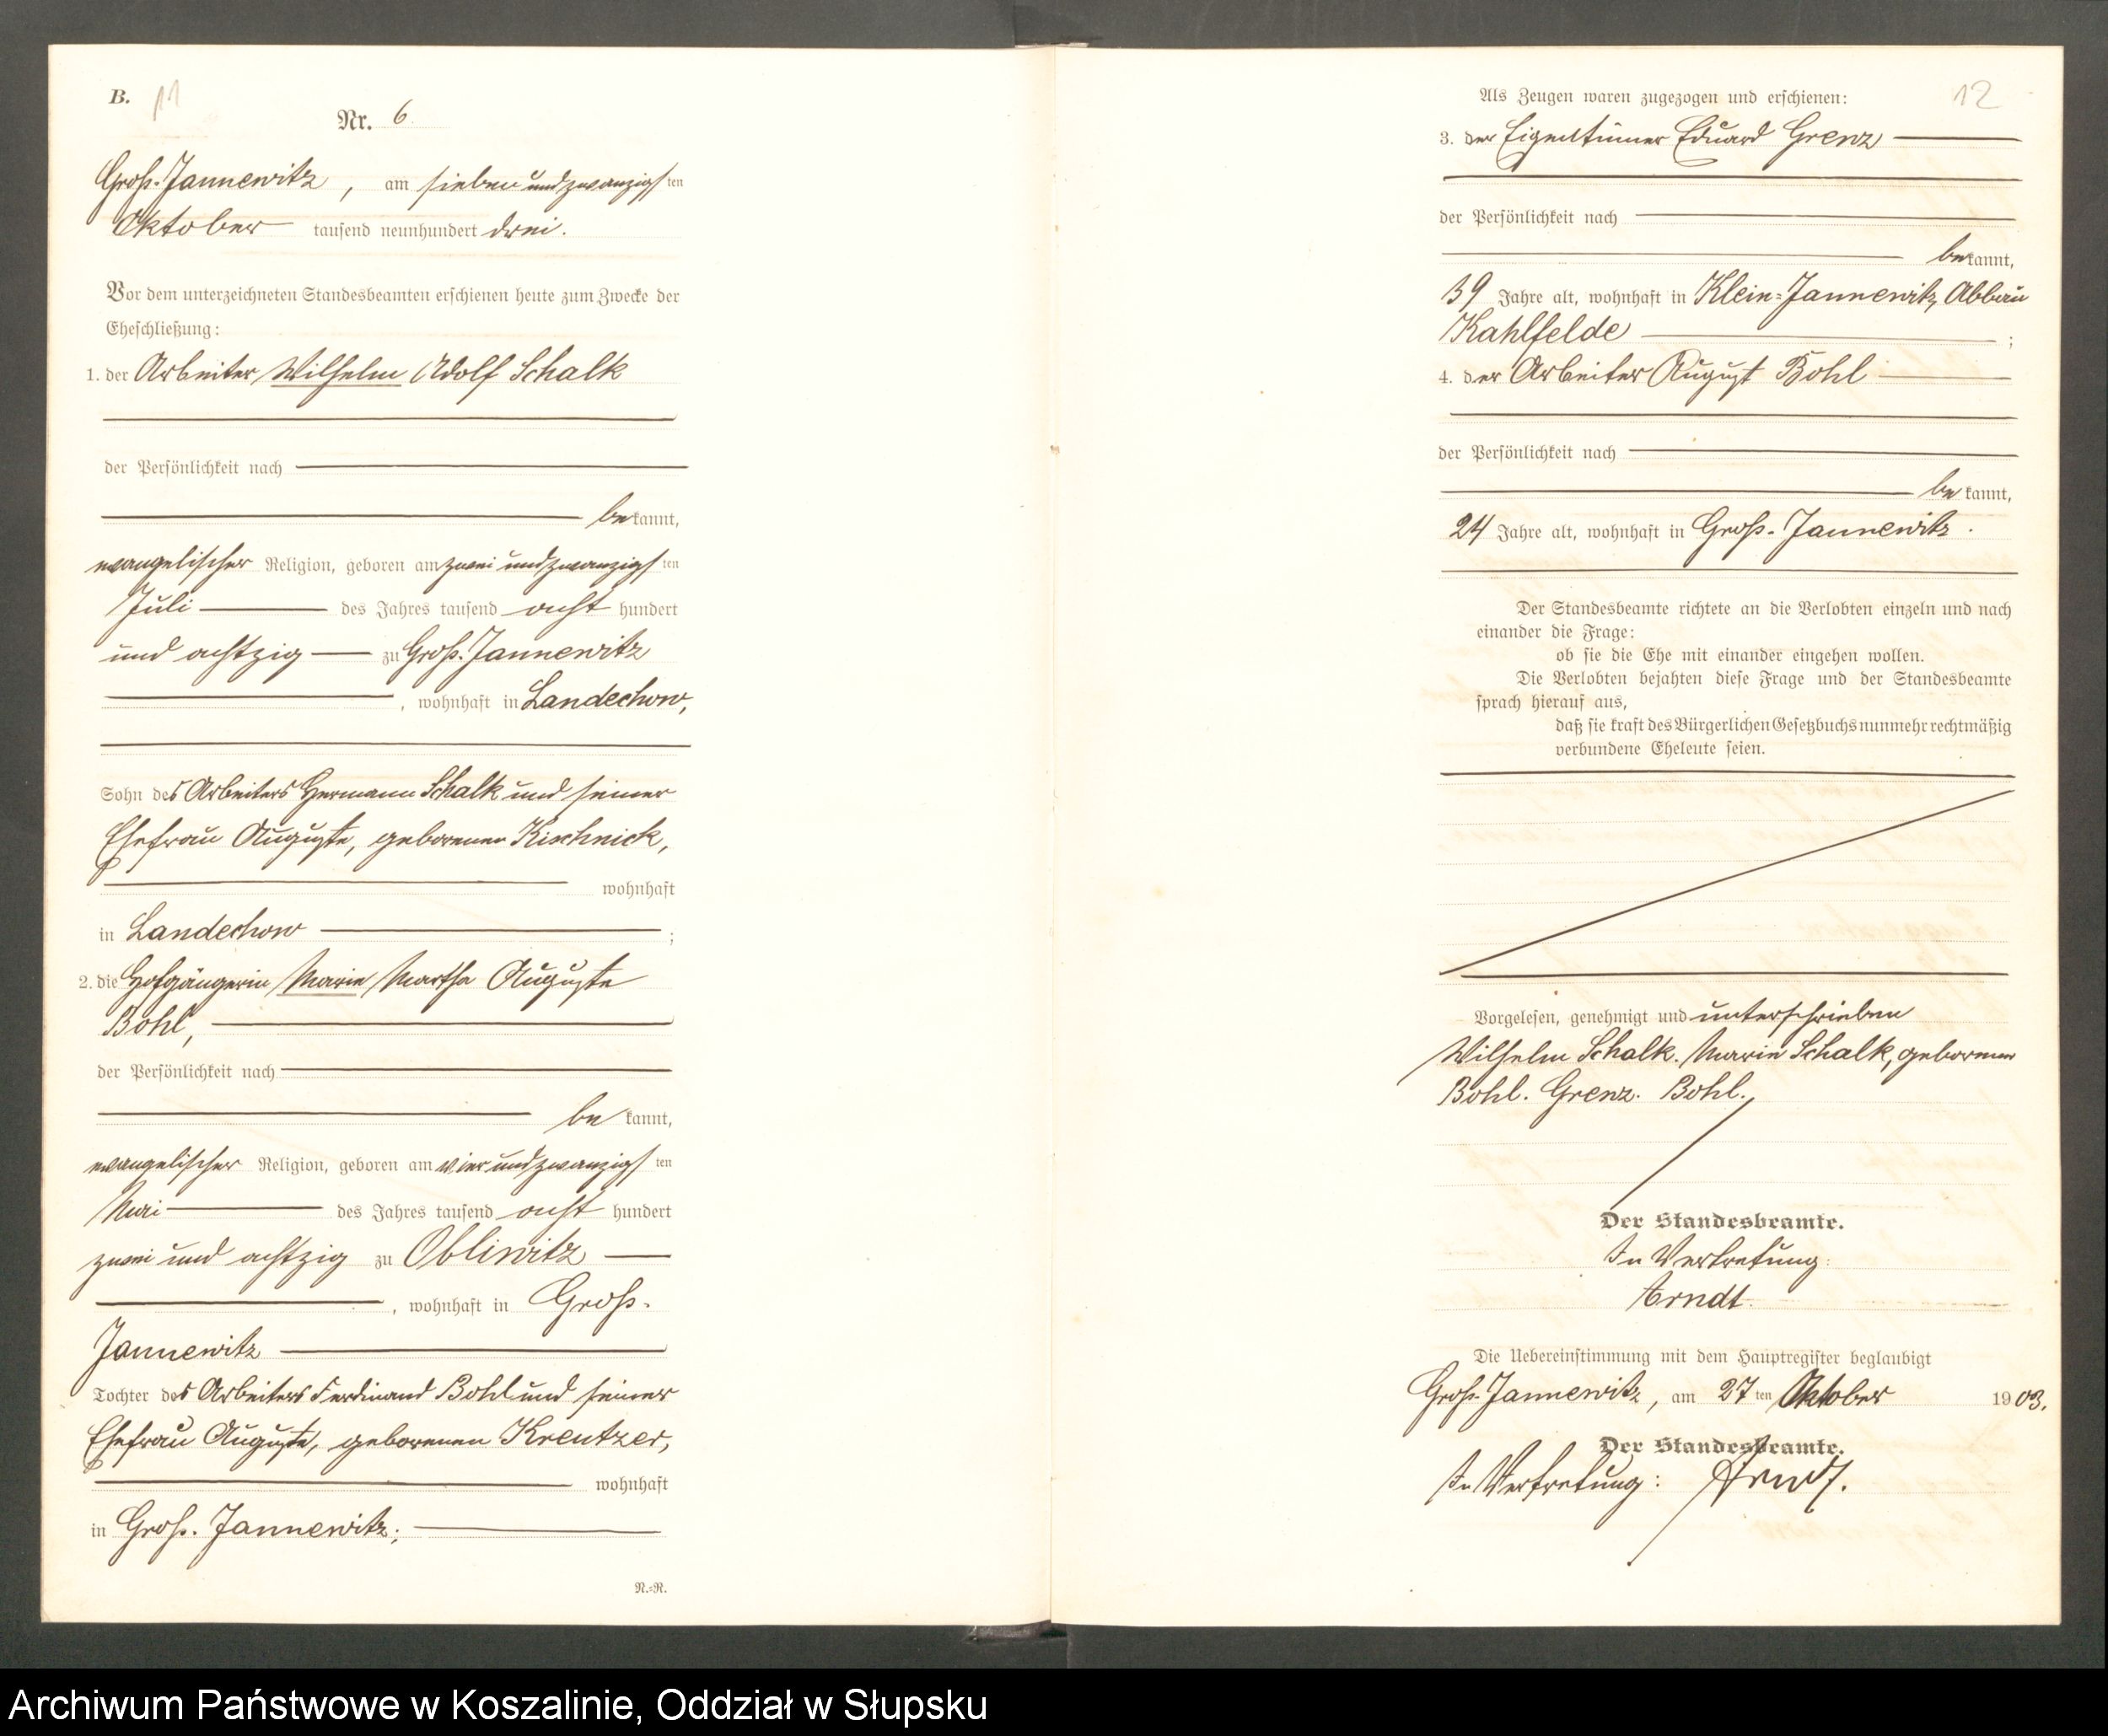 B. 11
Nr. 6
Groß-Jannewitz, am siebenundzwanzigsten
Oktober tausend neunhundert drei.
Vor dem unterzeichneten Standesbeamten erschienen heute zum Zwecke der
Eheschließung:
1. der Arbeiter Wilhelm Adolf Schalk
der Persönlichkeit nach
bekannt,
evangelischer Religion, geboren am zweiundzwanzigsten
Juli des Jahres tausend acht hundert
und achtzig zu Groß-Jannewitz
, wohnhaft in Landechow,
Sohn des Arbeiters Hermann Schalk und seiner
Ehefrau Auguste, geborenen Kischnick,
wohnhaft
in Landechow ;
2. die Hofgängerin Marie Martha Auguste
Bohl,
der Persönlichkeit nach
bekannt,
evangelischer Religion, geboren am vierundzwanzigsten
Mai des Jahres tausend acht hundert
zwei und achtzig zu Obliwitz
, wohnhaft in Groß-
Jannewitz
Tochter des Arbeiters Ferdinand Bohl und seiner
Ehefrau Auguste, geborenen Kreutzer,
wohnhaft
in Groß-Jannewitz;
N.=R.
12
Als Zeugen waren zugezogen und erschienen:
3. der Eigentümer Eduard Grenz
der Persönlichkeit nach
bekannt,
39 Jahre alt, wohnhaft in Klein-Jannewitz, Abbau
Kahlfelde ;
4. der Arbeiter August Bohl
der Persönlichkeit nach
bekannt,
24 Jahre alt, wohnhaft in Groß-Jannewitz.
Der Standesbeamte richtete an die Verlobten einzeln und nach
einander die Frage:
ob sie die Ehe mit einander eingehen wollen.
Die Verlobten bejahten diese Frage und der Standesbeamte
sprach hierauf aus,
daß sie kraft des Bürgerlichen Gesetzbuchs nunmehr rechtmäßig
verbundene Eheleute seien.
Vorgelesen, genehmigt und unterschrieben
Wilhelm Schalk. Marie Schalk, geborenen
Bohl. Grenz. Bohl.
Der Standesbeamte.
In Vertretung:
Arndt.
Die Uebereinstimmung mit dem Hauptregister beglaubigt
Groß-Jannewitz, am 27ten Oktober 1903.
Der Standesbeamte.
In Vertretung: Arndt.
Archiwum Państwowe w Koszalinie, Oddział w Słupsku